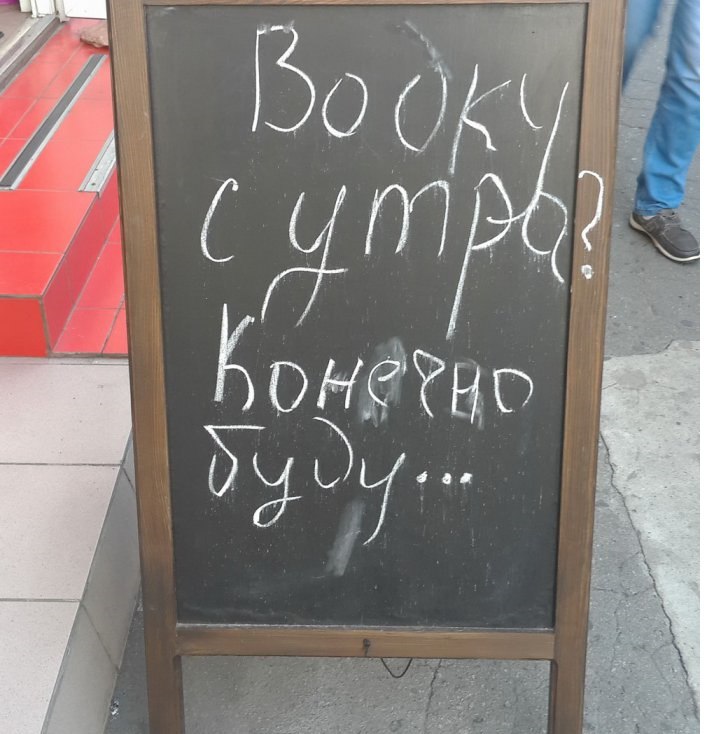 Водку
с утра?
Конечно
буду...